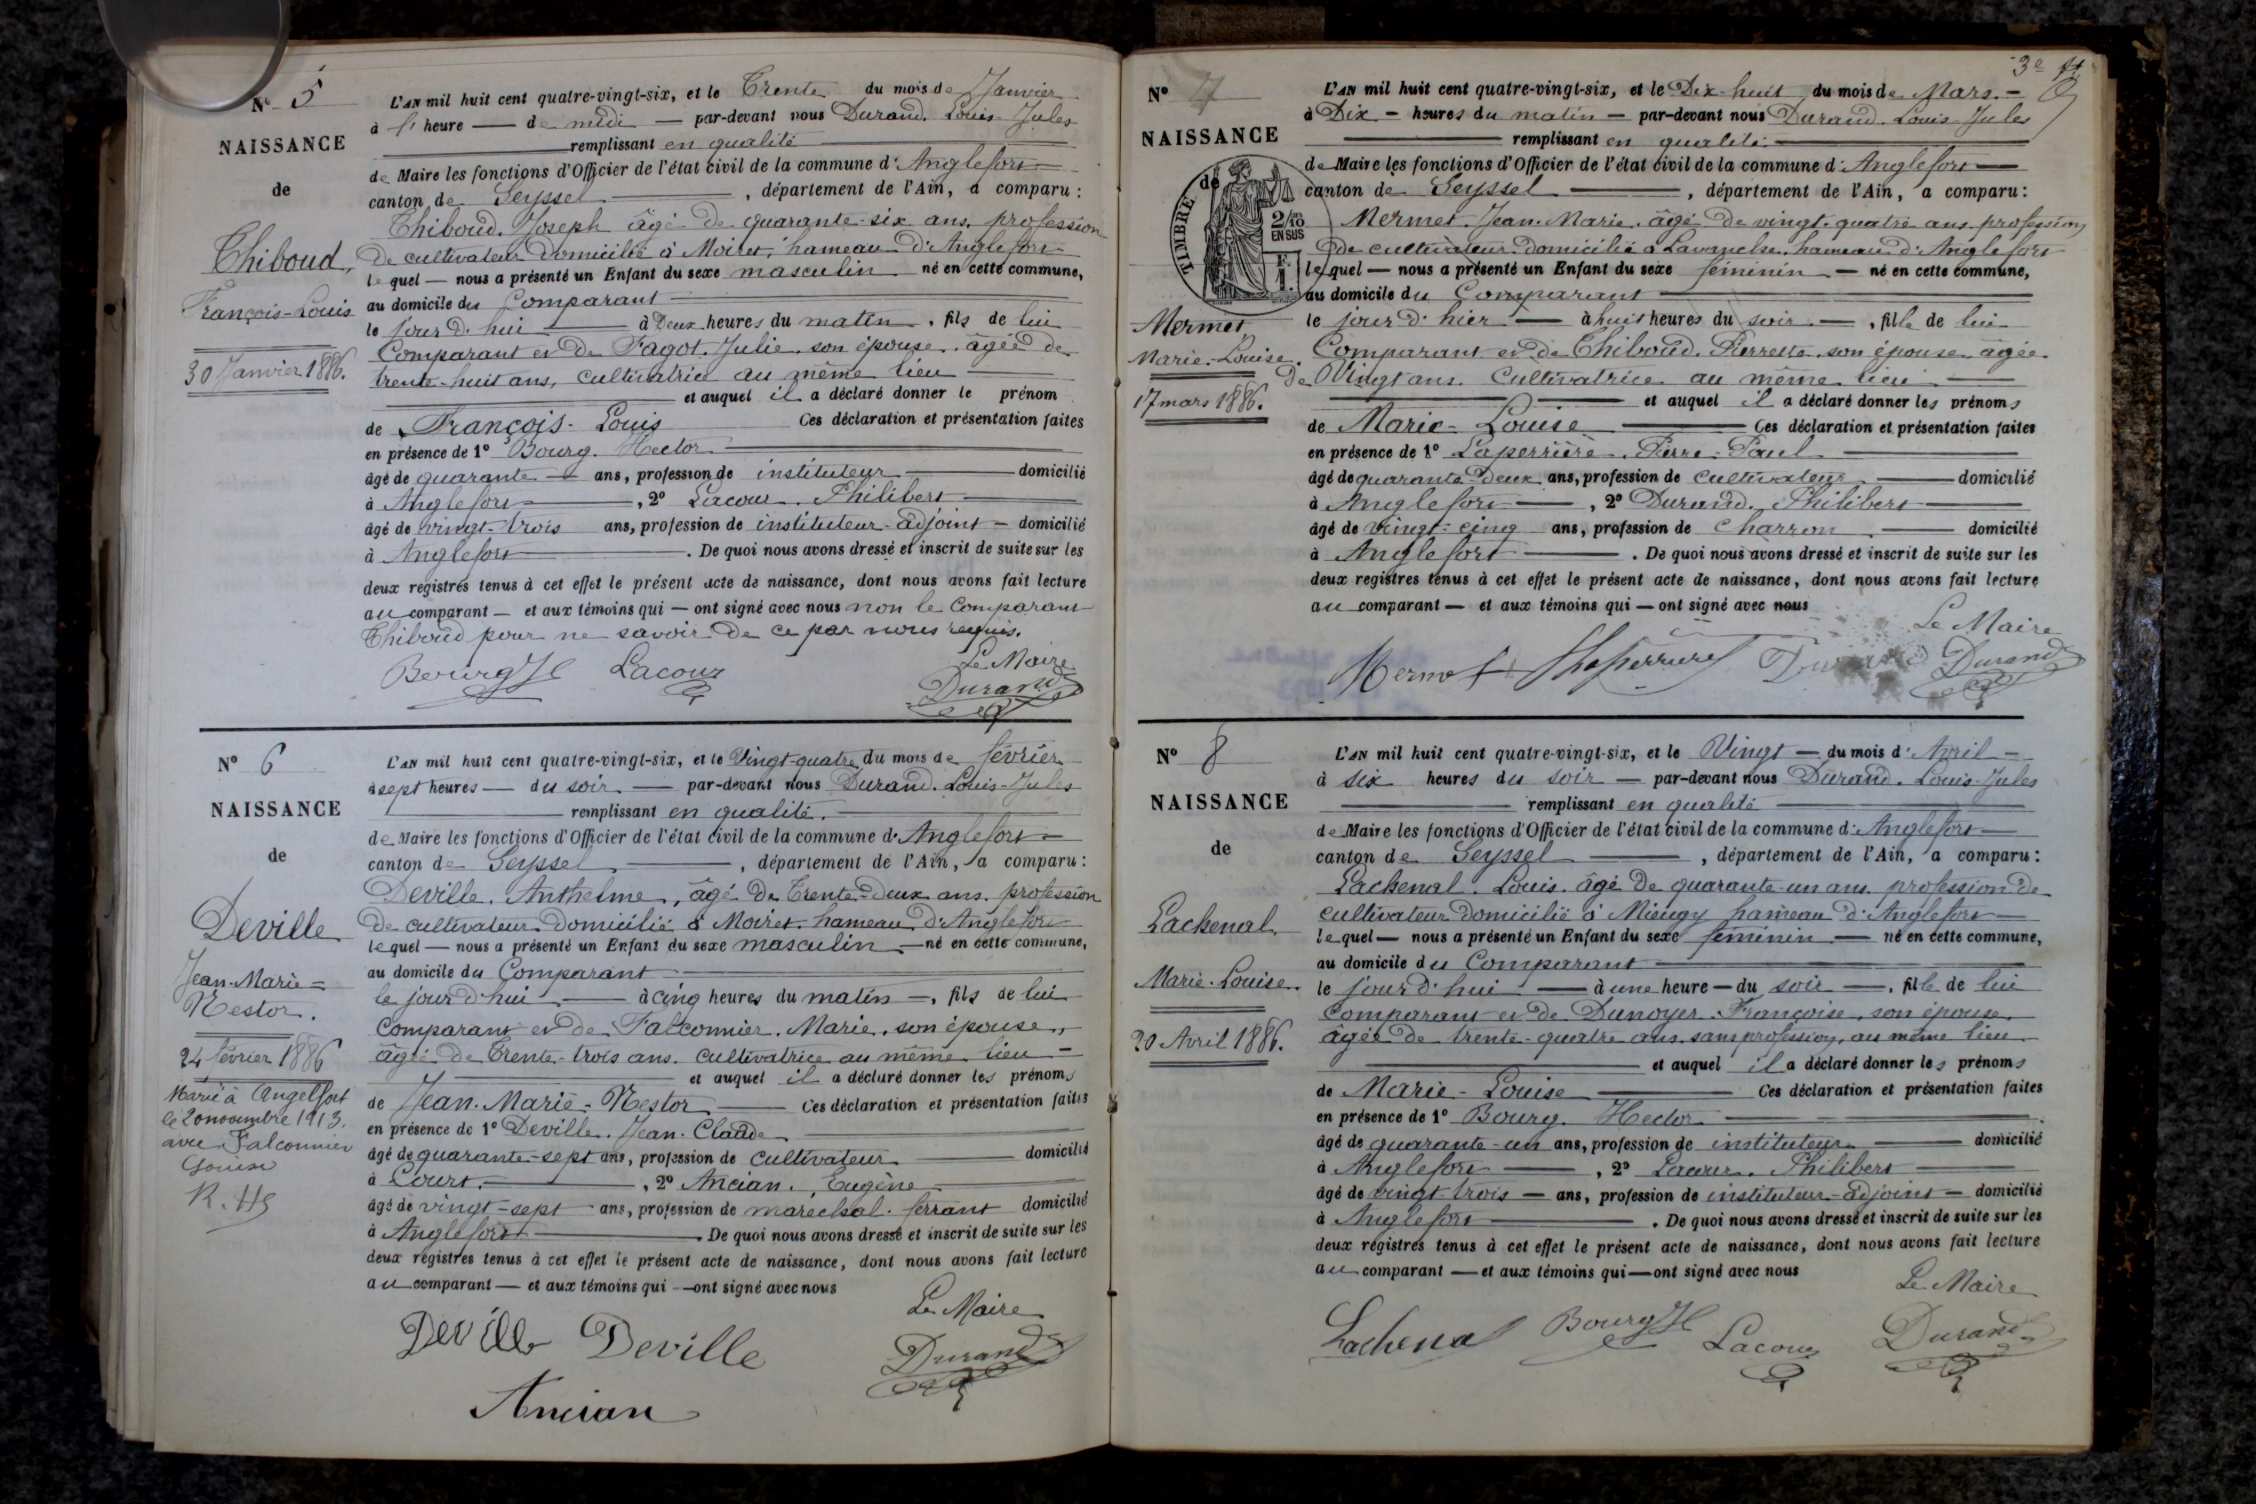 Nº 5
NAISSANCE
de
Thiboud,
François-Louis
30 Janvier 1886.
L'AN mil huit cent quatre-vingt-six, et le Trente du mois de Janvier
à l' heure — de midi — par-devant nous Durand. Louis-Jules
remplissant en qualité
de Maire les fonctions d'Officier de l'état civil de la commune d'Anglefort
canton de Seyssel, département de l'Ain, a comparu :
Thiboud. Joseph âgé de quarante-six ans, profession
de cultivateur domicilié à Moiret, hameau d'Anglefort
lequel — nous a présenté un Enfant du sexe masculin né en cette commune,
au domicile du Comparant
le jour d'hui à Deux heures du matin, fils de lui
Comparant et de Fagot. Julie. son épouse. âgée de
trente-huit ans, cultivatrice au même lieu
et auquel il a déclaré donner le prénom
de François-Louis Ces déclaration et présentation faites
en présence de 1º Bourg. Hector
âgé de quarante ans, profession de instituteur domicilié
à Anglefort, 2º Lacour. Philibert
âgé de vingt-trois ans, profession de instituteur-adjoint — domicilié
à Anglefort. De quoi nous avons dressé et inscrit de suite sur les
deux registres tenus à cet effet le présent acte de naissance, dont nous avons fait lecture
au comparant — et aux témoins qui — ont signé avec nous non le Comparant
Thiboud pour ne savoir de ce par nous requis.
Le Maire
Bourg H Lacour Durand
Nº 6
NAISSANCE
de
Deville
Jean-Marie=
Nestor.
24 février 1886
Marié à Angelfort
le 20 novembre 1913.
avec Falconnier
L'AN mil huit cent quatre-vingt-six, et le Vingt-quatre du mois de février
à sept heures — du soir — par-devant nous Durand. Louis-Jules
remplissant en qualité.
de Maire les fonctions d'Officier de l'état civil de la commune d'Anglefort
canton de Seyssel, département de l'Ain, a comparu :
Deville. Anthelme, âgé de Trente-Deux ans. profession
de cultivateur domicilié à Moiret. hameau d'Anglefort
lequel — nous a présenté un Enfant du sexe masculin — né en cette commune,
au domicile du Comparant
le jour d'hui — à cinq heures du matin —, fils de lui
comparant et de Falconnier. Marie. son épouse,
âgée de Trente-trois ans. cultivatrice au même lieu —
et auquel il a déclaré donner les prénoms
de Jean-Marie-Nestor Ces déclaration et présentation faites
en présence de 1º Deville. Jean-Claude
âgé de quarante-sept ans, profession de cultivateur domicilié
à Court., 2º Ancian. Eugène
âgé de vingt-sept ans, profession de marechal-ferrant domicilié
à Anglefort. De quoi nous avons dressé et inscrit de suite sur les
deux registres tenus à cet effet le présent acte de naissance, dont nous avons fait lecture
au comparant — et aux témoins qui — ont signé avec nous
Le Maire
Deville Deville Durand
Ancian
3e
Nº 7
NAISSANCE
de
TIMBRE
2/10 EN SUS
Mermet
Marie-Louise.
17 mars 1886.
L'AN mil huit cent quatre-vingt-six, et le Dix-huit du mois de Mars. —
à Dix — heures du matin — par-devant nous Durand. Louis-Jules
remplissant en qualité
de Maire les fonctions d'Officier de l'état civil de la commune d'Anglefort
canton de Seyssel, département de l'Ain, a comparu :
Mermet. Jean-Marie. âgé de vingt-quatre ans. profession
de cultivateur domicilié à Lavanche. hameau d'Anglefort
lequel — nous a présenté un Enfant du sexe féminin — né en cette commune,
au domicile du Comparant
le jour d'hier — à huit heures du soir —, fille de lui
Comparant et de Thiboud. Pierrette. son épouse âgée
de Vingt ans. Cultivatrice au même lieu
et auquel il a déclaré donner les prénoms
de Marie-Louise Ces déclaration et présentation faites
en présence de 1º Laperrière. Pierre-Paul
âgé de quarante-Deux ans, profession de cultivateur domicilié
à Anglefort, 2º Durand. Philibert
âgé de vingt-cinq ans, profession de charron domicilié
à Anglefort. De quoi nous avons dressé et inscrit de suite sur les
deux registres tenus à cet effet le présent acte de naissance, dont nous avons fait lecture
au comparant — et aux témoins qui — ont signé avec nous
Le Maire
Mermet Durand
Nº 8
NAISSANCE
de
Lachenal
Marie-Louise.
20 Avril 1886.
L'AN mil huit cent quatre-vingt-six, et le Vingt — du mois d'Avril —
à six heures du soir — par-devant nous Durand. Louis-Jules
remplissant en qualité
de Maire les fonctions d'Officier de l'état civil de la commune d'Anglefort
canton de Seyssel, département de l'Ain, a comparu :
Lachenal. Louis. âgé de quarante-un ans. profession de
cultivateur domicilié à Mieugy hameau d'Anglefort
lequel — nous a présenté un Enfant du sexe féminin — né en cette commune,
au domicile du Comparant
le jour d'hui — à une heure — du soir —, fille de lui
Comparant et de Dunoyer. Françoise. son épouse
âgée de trente-quatre ans sans profession, au même lieu
et auquel il a déclaré donner les prénoms
de Marie-Louise Ces déclaration et présentation faites
en présence de 1º Bourg. Hector
âgé de quarante-un ans, profession de instituteur domicilié
à Anglefort, 2º Lacour. Philibert
âgé de vingt-trois — ans, profession de instituteur-adjoint — domicilié
à Anglefort. De quoi nous avons dressé et inscrit de suite sur les
deux registres tenus à cet effet le présent acte de naissance, dont nous avons fait lecture
au comparant — et aux témoins qui — ont signé avec nous
Le Maire
Lachenal Bourg H Lacour Durand